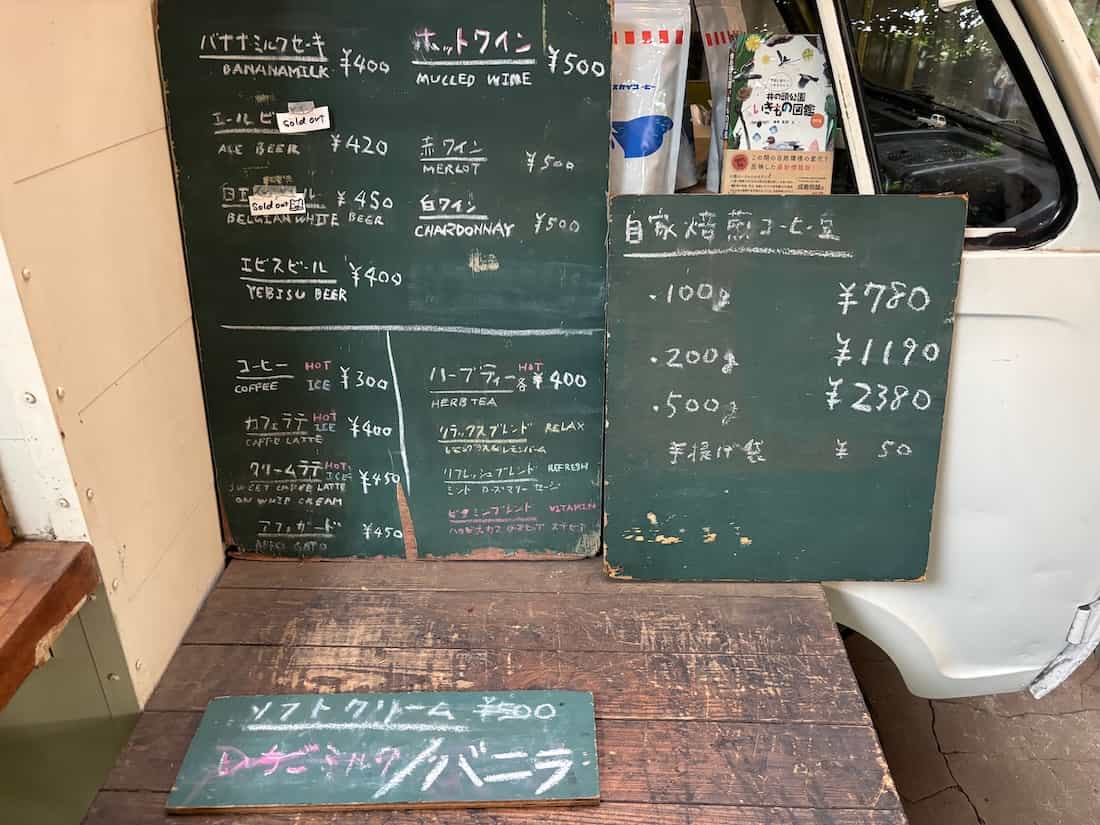 バナナミルクセーキ
BANANAMILK ¥400
エールビ
Sold out
ALE BEER ¥420
白エ ール
Sold out
BELGIAN WHITE BEER ¥450
エビスビール
YEBISU BEER ¥400
ホットワイン
MULLED WINE ¥500
赤ワイン
MERLOT ¥500
白ワイン
CHARDONNAY ¥500
コーヒー HOT
COFFEE ICE ¥300
カフェラテ HOT
ICE ¥400
CAFFE LATTE
クリームラテ HOT
ICE ¥450
SWEET CAFFE LATTE
ON WHIP CREAM
アフォガード ¥450
AFFO GATO
ハーブティー HOT
各¥400
HERB TEA
リラックスブレンド RELAX
レモングラス レモンバーム
リフレッシュブレンド REFRESH
ミント ローズマリー セージ
ビタミンブレンド VITAMIN
ハイビスカス ローズヒップ
スカイコーヒー
井の頭公園
いきもの図鑑
この間の自然環境の変化を
反映した最新情報版!
自家焙煎コーヒー豆
・100g ¥780
・200g ¥1190
・500g ¥2380
手提げ袋 ¥50
ソフトクリーム ¥500
いちごミルク/バニラ